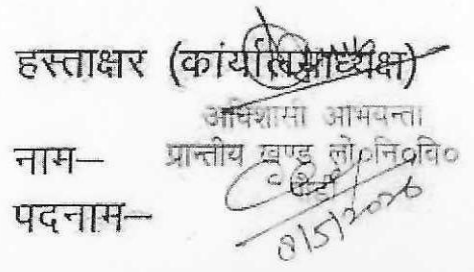 हस्ताक्षर (कार्यालयाध्यक्ष)
अधिशासी अभियन्ता
नाम— प्रान्तीय खण्ड लो०नि०वि०
पौड़ी
पदनाम—
8/5/2026